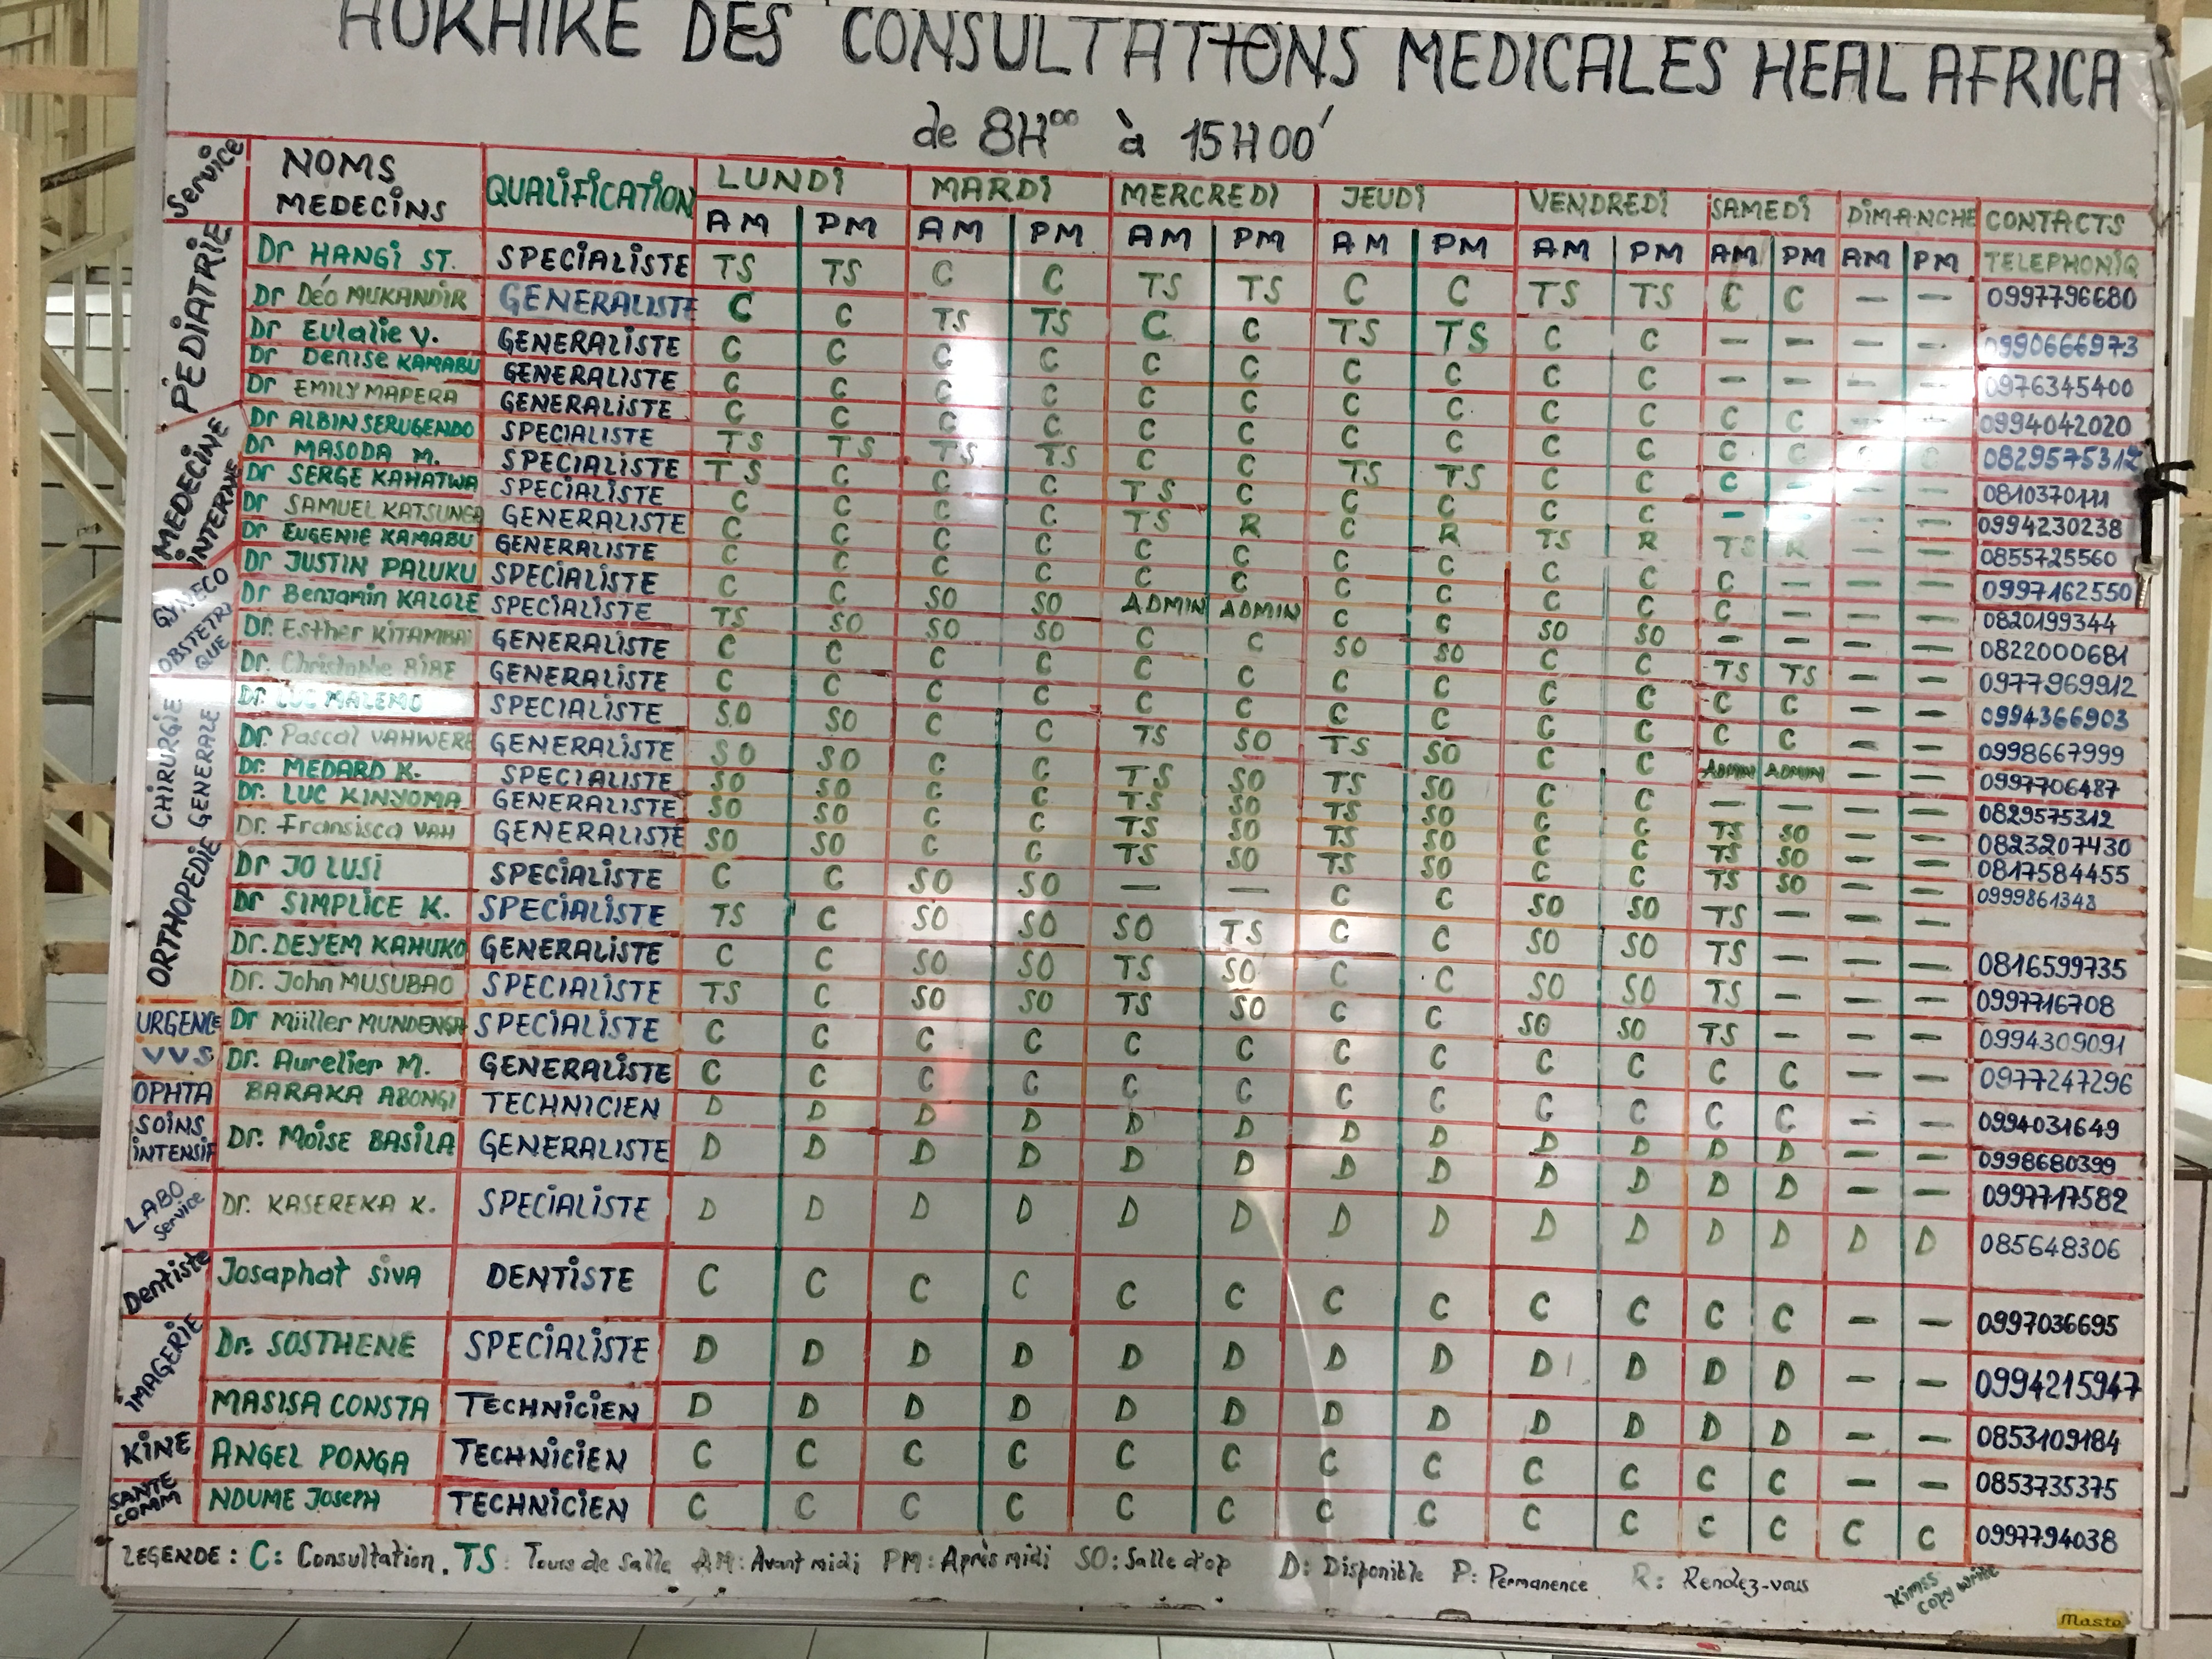 HORAIRE DES CONSULTATIONS MEDICALES HEAL AFRICA
de 8H00 à 15H00'
Service NOMS MEDECINS QUALIFICATION LUNDI MARDI MERCREDI JEUDI VENDREDI SAMEDI DIMANCHE CONTACTS TELEPHONIQ
AM PM AM PM AM PM AM PM AM PM AM PM AM PM
PEDIATRIE
Dr HANGI ST. SPECIALISTE TS TS C C TS TS C C TS TS C C — — 0997796680
Dr Déo MUKANDIR GENERALISTE C C TS TS C C TS TS C C — — — — 0990666973
Dr Eulalie V. GENERALISTE C C C C C C C C C C — — — — 0976345400
Dr Denise KAMABU GENERALISTE C C C C C C C C C C C C — — 0994042020
Dr EMILY MAPERA GENERALISTE C C C C C C C C C C C C C C 0829575312
MEDECINE INTERNE
Dr ALBIN SERUGENDO SPECIALISTE TS TS TS TS C C TS TS C C C — — — 0810370111
Dr MASODA M. SPECIALISTE TS C C C TS C C C C C — — — — 0994230238
Dr SERGE KAHATWA SPECIALISTE C C C C TS R C R TS R TS R — — 0855725560
Dr SAMUEL KATSUNGA GENERALISTE C C C C C C C C C C C — — — 0997162550
Dr EUGENIE KAMABU GENERALISTE C C C C C C C C C C C — — — 0820199344
GYNECO OBSTETRIQUE
Dr JUSTIN PALUKU SPECIALISTE C C SO SO ADMIN ADMIN C C SO SO — — — — 0822000681
Dr Benjamin KALOLE SPECIALISTE TS SO SO SO C C SO SO C C TS TS — — 0977969912
Dr. Esther KITAMBAI GENERALISTE C C C C C C C C C C C C — — 0994366903
Dr. Christophe BIBE GENERALISTE C C C C C C C C C C C C — — 0998667999
CHIRURGIE GENERALE
Dr. LUC MALEMO SPECIALISTE SO SO C C TS SO TS SO C C ADMIN ADMIN — — 0997706487
Dr. Pascal VAHWERE GENERALISTE SO SO C C TS SO TS SO C C — — — — 0829575312
Dr. MEDARD K. SPECIALISTE SO SO C C TS SO TS SO C C TS SO — — 0823207430
Dr. LUC KINYOMA GENERALISTE SO SO C C TS SO TS SO C C TS SO — — 0817584455
Dr. Fransisca VAH GENERALISTE SO SO C C TS SO TS SO C C TS SO — — 0999861348
ORTHOPEDIE
Dr JO LUSI SPECIALISTE C C SO SO — — C C SO SO TS — — —
Dr SIMPLICE K. SPECIALISTE TS C SO SO SO TS C C SO SO TS — — — 0816599735
Dr. DEYEM KAHUKO GENERALISTE C C SO SO TS SO C C SO SO TS — — — 0997716708
Dr. John MUSUBAO SPECIALISTE TS C SO SO TS SO C C SO SO TS — — — 0994309091
URGENCE Dr Müller MUNDENGA SPECIALISTE C C C C C C C C C C C C — — 0977247296
VVS Dr. Aurelier M. GENERALISTE C C C C C C C C C C C C — — 0994031649
OPHTA BARAKA ABONGI TECHNICIEN D D D D D D D D D D D D — — 0998680399
SOINS INTENSIF Dr. Moise BASILA GENERALISTE D D D D D D D D D D D D — — 0997717582
LABO Service Dr. KASEREKA K. SPECIALISTE D D D D D D D D D D D D D D 085648306
Dentiste Josaphat SIVA DENTISTE C C C C C C C C C C C C — — 0997036695
IMAGERIE
Dr. SOSTHENE SPECIALISTE D D D D D D D D D D D D — — 0994215947
MASISA CONSTA TECHNICIEN D D D D D D D D D D D D — — 0853109184
KINE ANGEL PONGA TECHNICIEN C C C C C C C C C C C C — — 0853735375
SANTE COMM NDUME JOSEPH TECHNICIEN C C C C C C C C C C C C C C 0997794038
LEGENDE : C : Consultation. TS : Tours de salle AM : Avant midi PM : Après midi SO : Salle d'op D : Disponible P : Permanence R : Rendez-vous
Kimss copy write